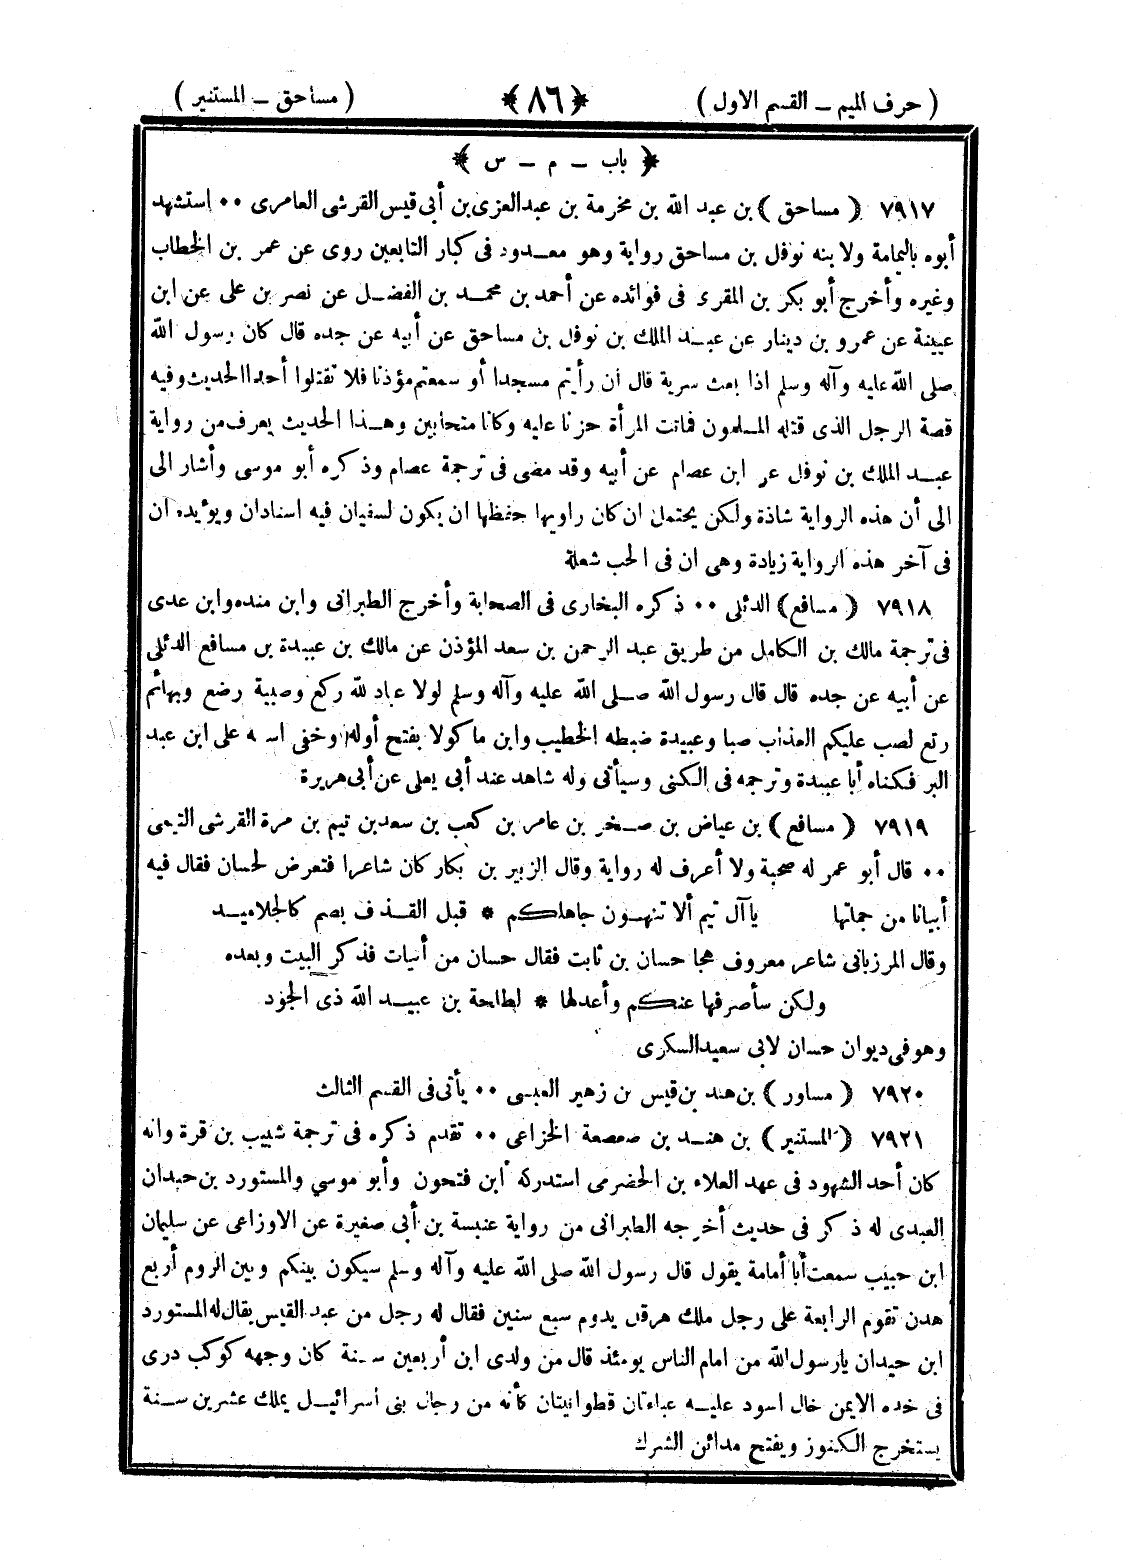 ( حرف الميم – القسم الاول ) ﴿ ٨٦ ﴾ ( مساحق – المستنير )
﴿ باب – م – س ﴾
٧٩١٧ ( مساحق ) بن عبد الله بن مخرمة بن عبدالعزى بن أبى قيس القرشى العامرى ٠٠ استشهد
أبوه باليمامة ولابنه نوفل بن مساحق رواية وهو معدود فى كبار التابعين روى عن عمر بن الخطاب
وغيره وأخرج أبو بكر بن المقرى فى فوائده عن أحمد بن محمد بن الفضل عن نصر بن على عن ابن
عيينة عن عمرو بن دينار عن عبد الملك بن نوفل بن مساحق عن أبيه عن جده قال كان رسول الله
صلى الله عليه وآله وسلم اذا بعث سرية قال ان رأيتم مسجدا أو سمعتم مؤذنا فلا تقتلوا أحدا الحديث وفيه
قصة الرجل الذى قتله المسلمون فماتت المرأة حزنا عليه وكانا متحابين وهذا الحديث يعرف من رواية
عبد الملك بن نوفل عن ابن عصام عن أبيه وقد مضى فى ترجمة عصام وذكره أبو موسى وأشار الى
الى أن هذه الرواية شاذة ولكن يحتمل ان كان راويها حفظها ان يكون لسفيان فيه اسنادان ويؤيده ان
فى آخر هذه الرواية زيادة وهى ان فى الحب شعلة
٧٩١٨ ( مسافع ) الدئلى ٠٠ ذكره البخارى فى الصحابة وأخرج الطبرانى وابن منده وابن عدى
فى ترجمة مالك بن الكامل من طريق عبد الرحمن بن سعد المؤذن عن مالك بن عبيدة بن مسافع الدئلى
عن أبيه عن جده قال قال رسول الله صلى الله عليه وآله وسلم لولا عباد لله ركع وصبية رضع وبهائم
رتع لصب عليكم العذاب صبا وعبيدة ضبطه الخطيب وابن ماكولا بفتح أوله وخفى اسمه على ابن عبد
البر فكناه أبا عبيدة وترجمه فى الكنى وسيأتى وله شاهد عند أبى يعلى عن أبى هريرة
٧٩١٩ ( مسافع ) بن عياض بن صخر بن عامر بن كعب بن سعد بن تيم بن مرة القرشى التيمى
٠٠ قال أبو عمر له صحبة ولا أعرف له رواية وقال الزبير بن بكار كان شاعرا فتعرض لحسان فقال فيه
أبياتا من جملتها يا آل تيم ألا تنهون جاهلكم * قبل القذف بصم كالجلاميد
وقال المرزبانى شاعر معروف هجا حسان بن ثابت فقال حسان من أبيات فذكر البيت وبعده
ولكن سأصرفها عنكم وأعدلها * لطلحة بن عبيد الله ذى الجود
وهو فى ديوان حسان لابى سعيد السكرى
٧٩٢٠ ( مساور ) بن هند بن قيس بن زهير العبسى ٠٠ يأتى فى القسم الثالث
٧٩٢١ ( المستنير ) بن هند بن صعصعة الخزاعى ٠٠ تقدم ذكره فى ترجمة شبيب بن قرة وانه
كان أحد الشهود فى عهد العلاء بن الحضرمى استدركه ابن فتحون وأبو موسي والمستورد بن حيدان
العبدى له ذكر فى حديث أخرجه الطبرانى من رواية عنبسة بن أبى صغيرة عن الاوزاعى عن سليمان
ابن حبيب سمعت أبا أمامة يقول قال رسول الله صلى الله عليه وآله وسلم سيكون بينكم وبين الروم أربع
هدن تقوم الرابعة على رجل ملك هرقل يدوم سبع سنين فقال له رجل من عبد القيس يقال له المستورد
ابن حيدان يارسول الله من امام الناس يومئذ قال من ولدى ابن أربعين سنة كان وجهه كوكب درى
فى خده الايمن خال اسود عليه عباءتان قطوانيتان كأنه من رجال بنى اسرائيل يملك عشرين سنة
يستخرج الكنوز ويفتح مدائن الشرك